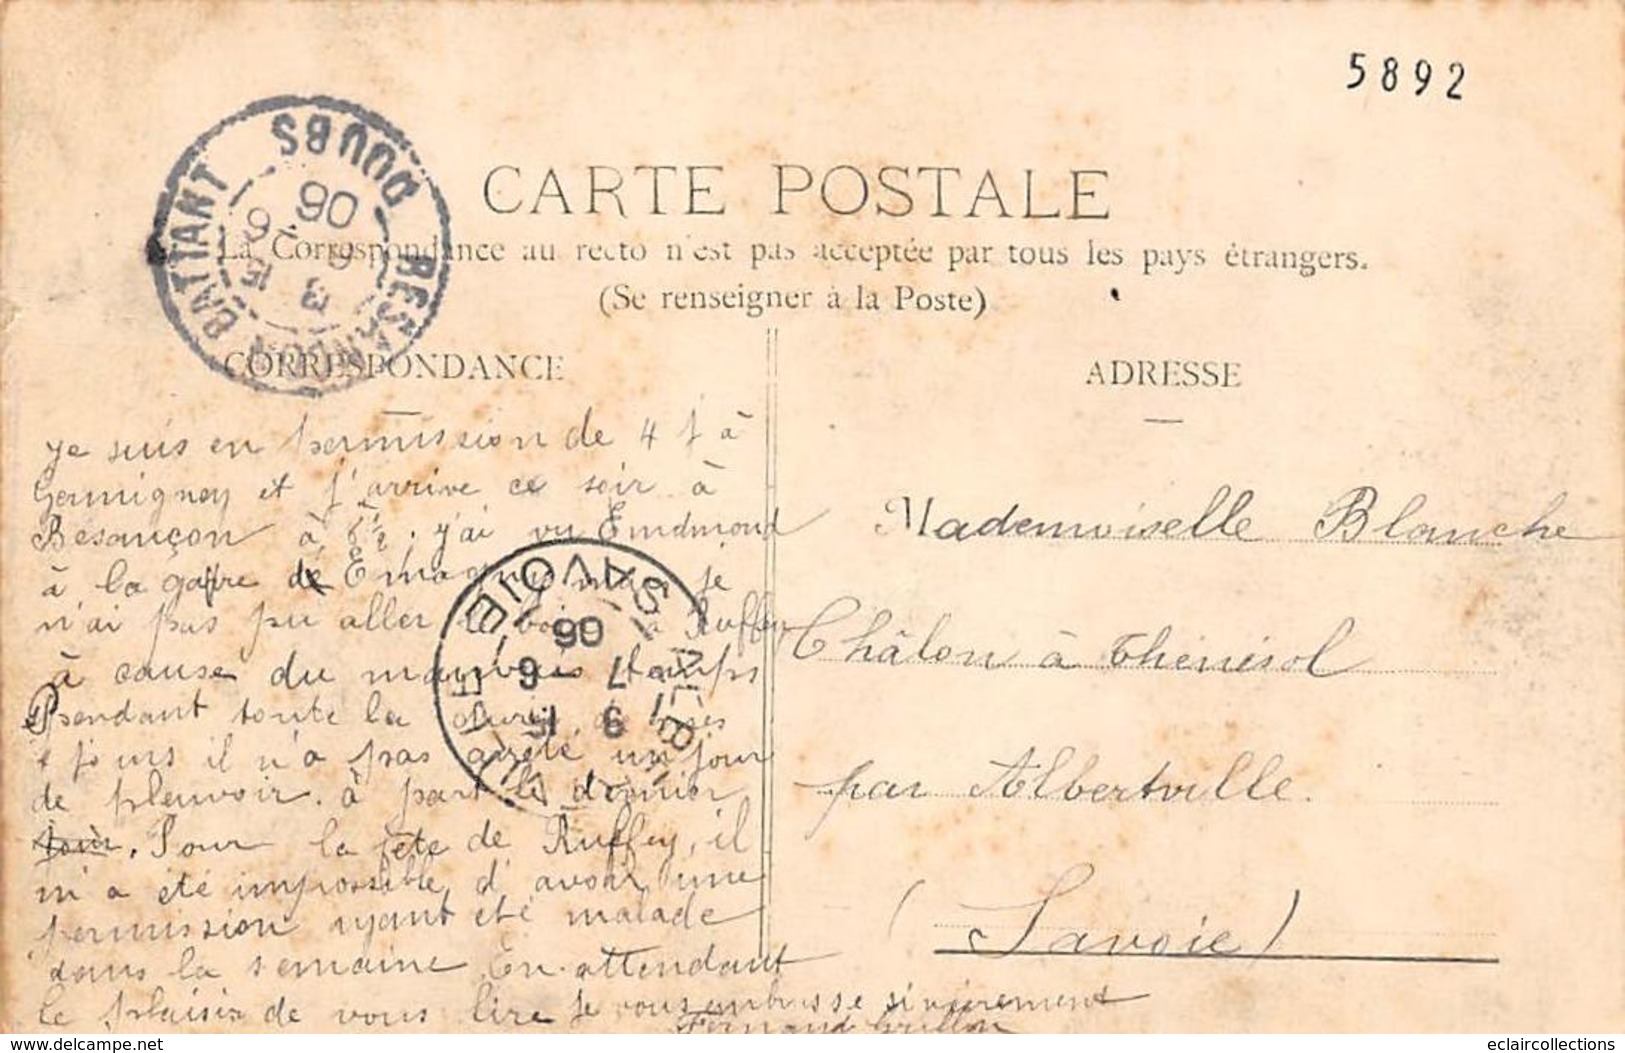 5892
BESANÇON BATTANT DOUBS
3 15
6 - 6
06
CARTE POSTALE
La Correspondance au recto n'est pas acceptée par tous les pays étrangers.
(Se renseigner à la Poste)
CORRESPONDANCE
je suis en permission de 4 j à
Germigney et j'arrive ce soir à
Besançon à 6 ½. j'ai vu Emdmond
à la gare de Emagny mais je
n'ai pas pu aller le voir à Ruffey
à cause du mauvais temps
Pendant toute la durée de mes
4 jours il n'a pas arrêté un jour
de pleuvoir. à part le dernier
jour. Pour la fête de Ruffey, il
m'a été impossible d'avoir une
permission ayant été malade
dans la semaine. En attendant
le plaisir de vous lire je vous embrasse sincèrement
Fernand Grillon
ALBERTVILLE SAVOIE
9 15
7 6
06
ADRESSE
Mademoiselle Blanche
Châlon à Thénésol
par Albertville.
(Savoie)
www.delcampe.net
eclaircollections